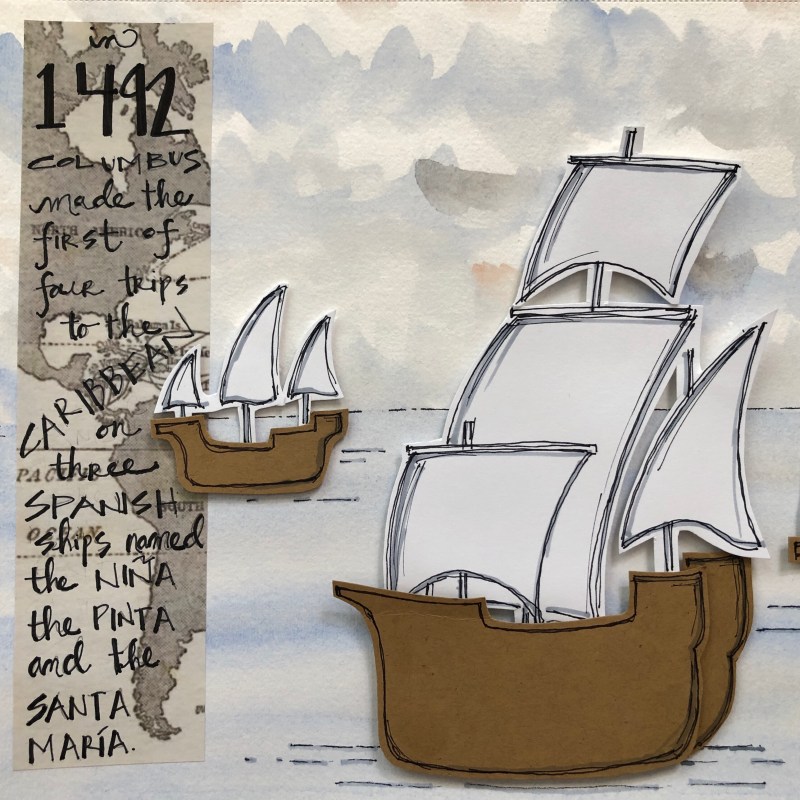 in
1492
COLUMBUS
made the
first of
four trips
to the
CARIBBEAN
on
three
SPANISH
ships named
the NIÑA
the PINTA
and the
SANTA
MARÍA.
NORTH AMERICA
SOUTH
OCEAN